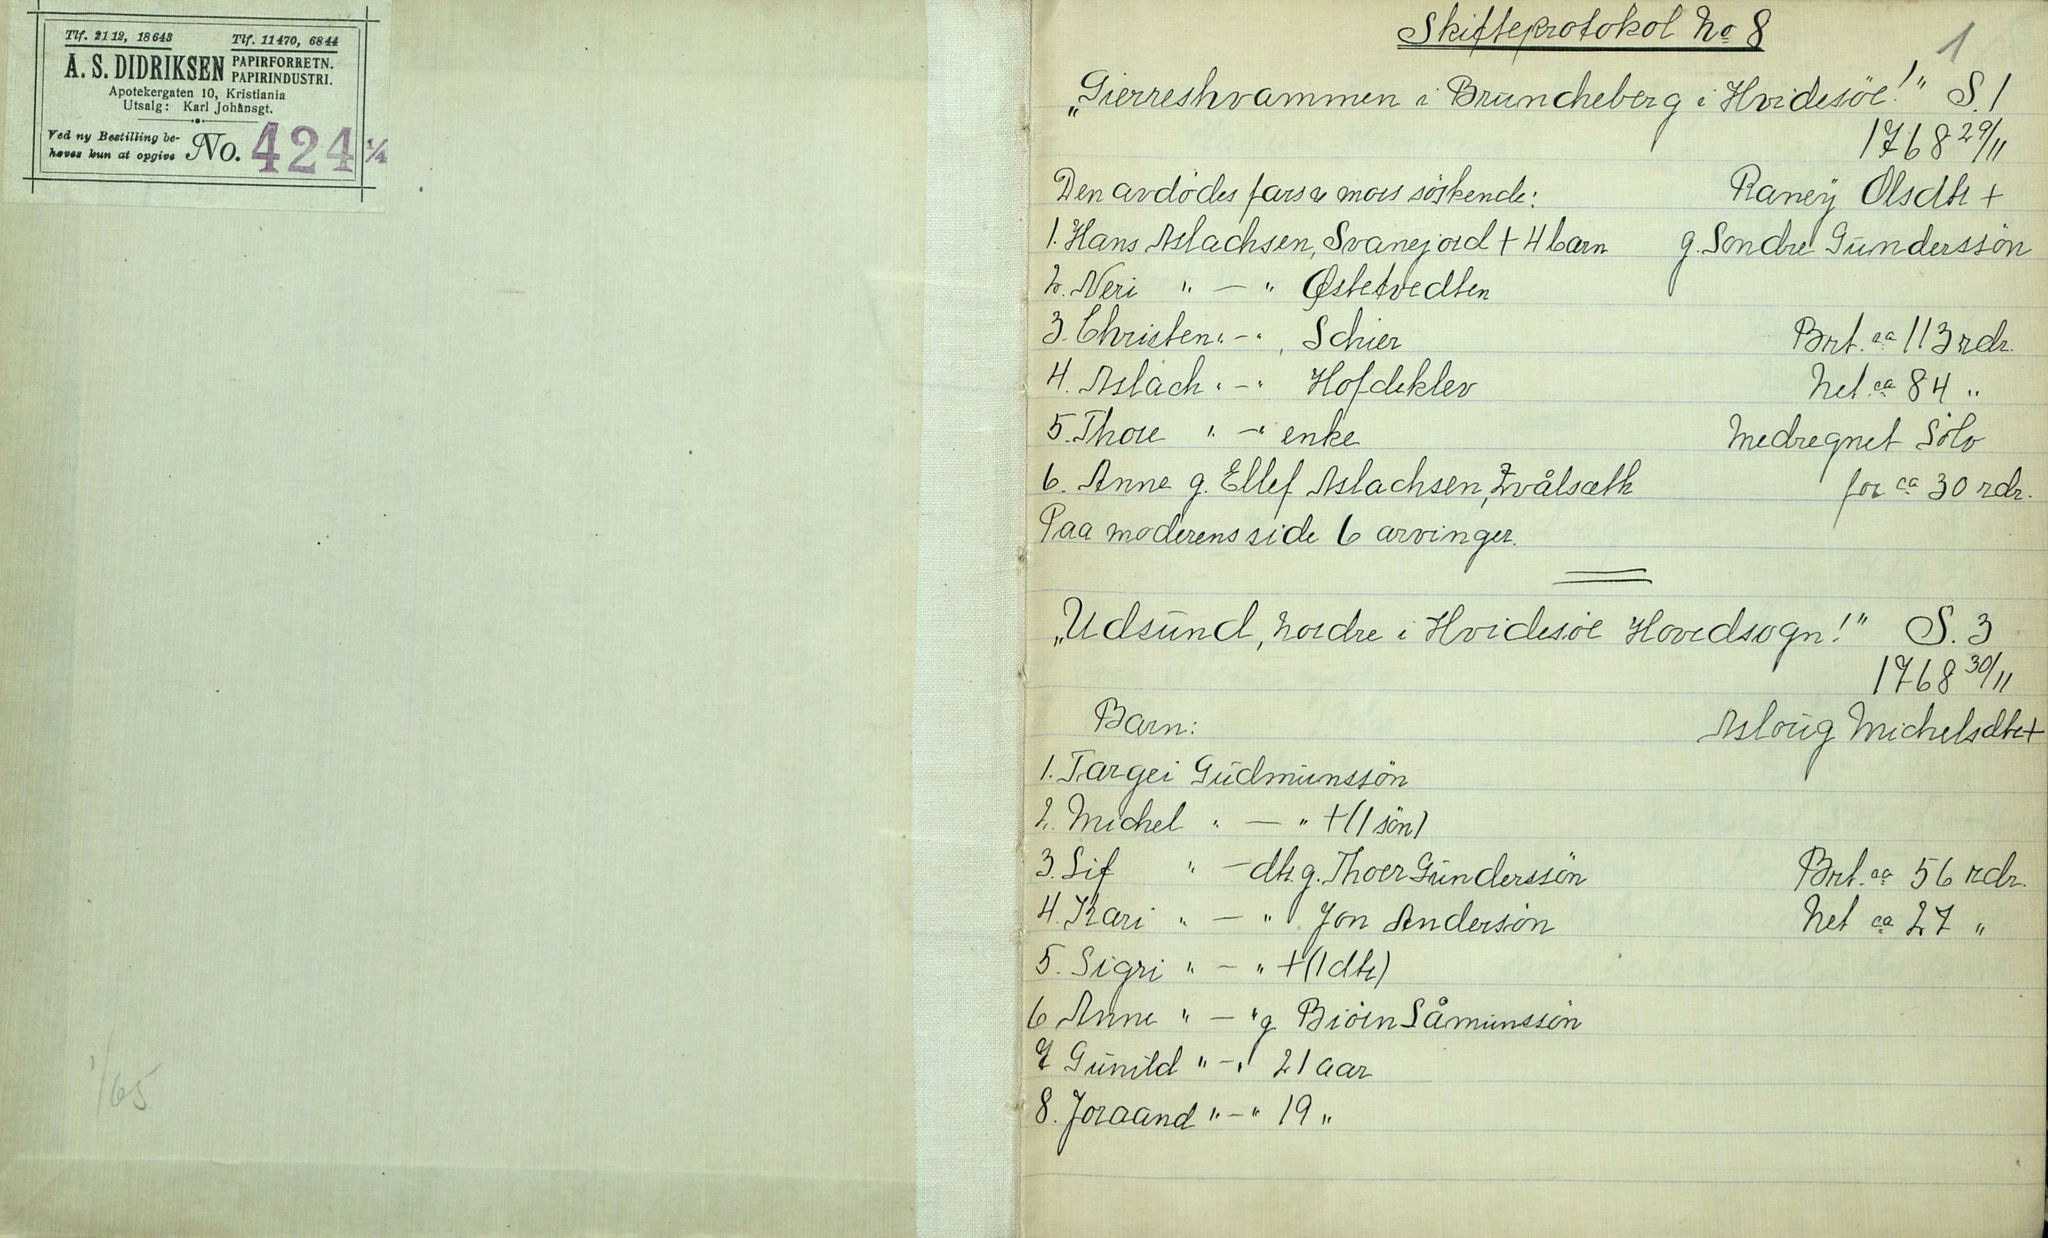 Tlf. 2112, 18643 Tlf. 11470, 6844
A. S. DIDRIKSEN PAPIRFORRETN.
PAPIRINDUSTRI.
Apotekergaten 10, Kristiania
Utsalg: Karl Johansgt.
Ved ny Bestilling be-
høves kun at opgive No. 424 1/4
1/65
Skifteprotokol No 8
1
„Gierreshvammen i Bruncheberg i Hvidesöe!" S. 1
1768 29/11
Den avdödes fars & mors söskende: Raney Olsdtr +
1. Hans Aslachsen, Svanejord + 4 barn g. Sondre Gunderssön
2. Neri " — " Østetvedten
3. Christen " — " , Schier Brt. ca 113 rdr.
4. Aslach " — " Hofdeklev Net ca 84 "
5. Thore " — " enke Medregnet Sölv
6. Anne g. Ellef Aslachsen, Kvålsæth for ca 30 rdr.
Paa moderens side 6 arvinger.
„Udsund, nordre i Hvidesöe Hovedsogn!" S. 3
1768 30/11
Barn: Asloug Michelsdtr +
1. Targei Gudmunssön
2. Michel " — " + (1 sön)
3. Sif " — dtr. g. Thoer Gunderssön Brt. ca 56 rdr.
4. Kari " — " Jon Andersön Net ca 27 "
5. Sigri " — " + (1 dtr)
6 Anne " — " g Biöen Såmunssön
7 Gunild " — " 21 aar
8. Joraand " — " 19 "